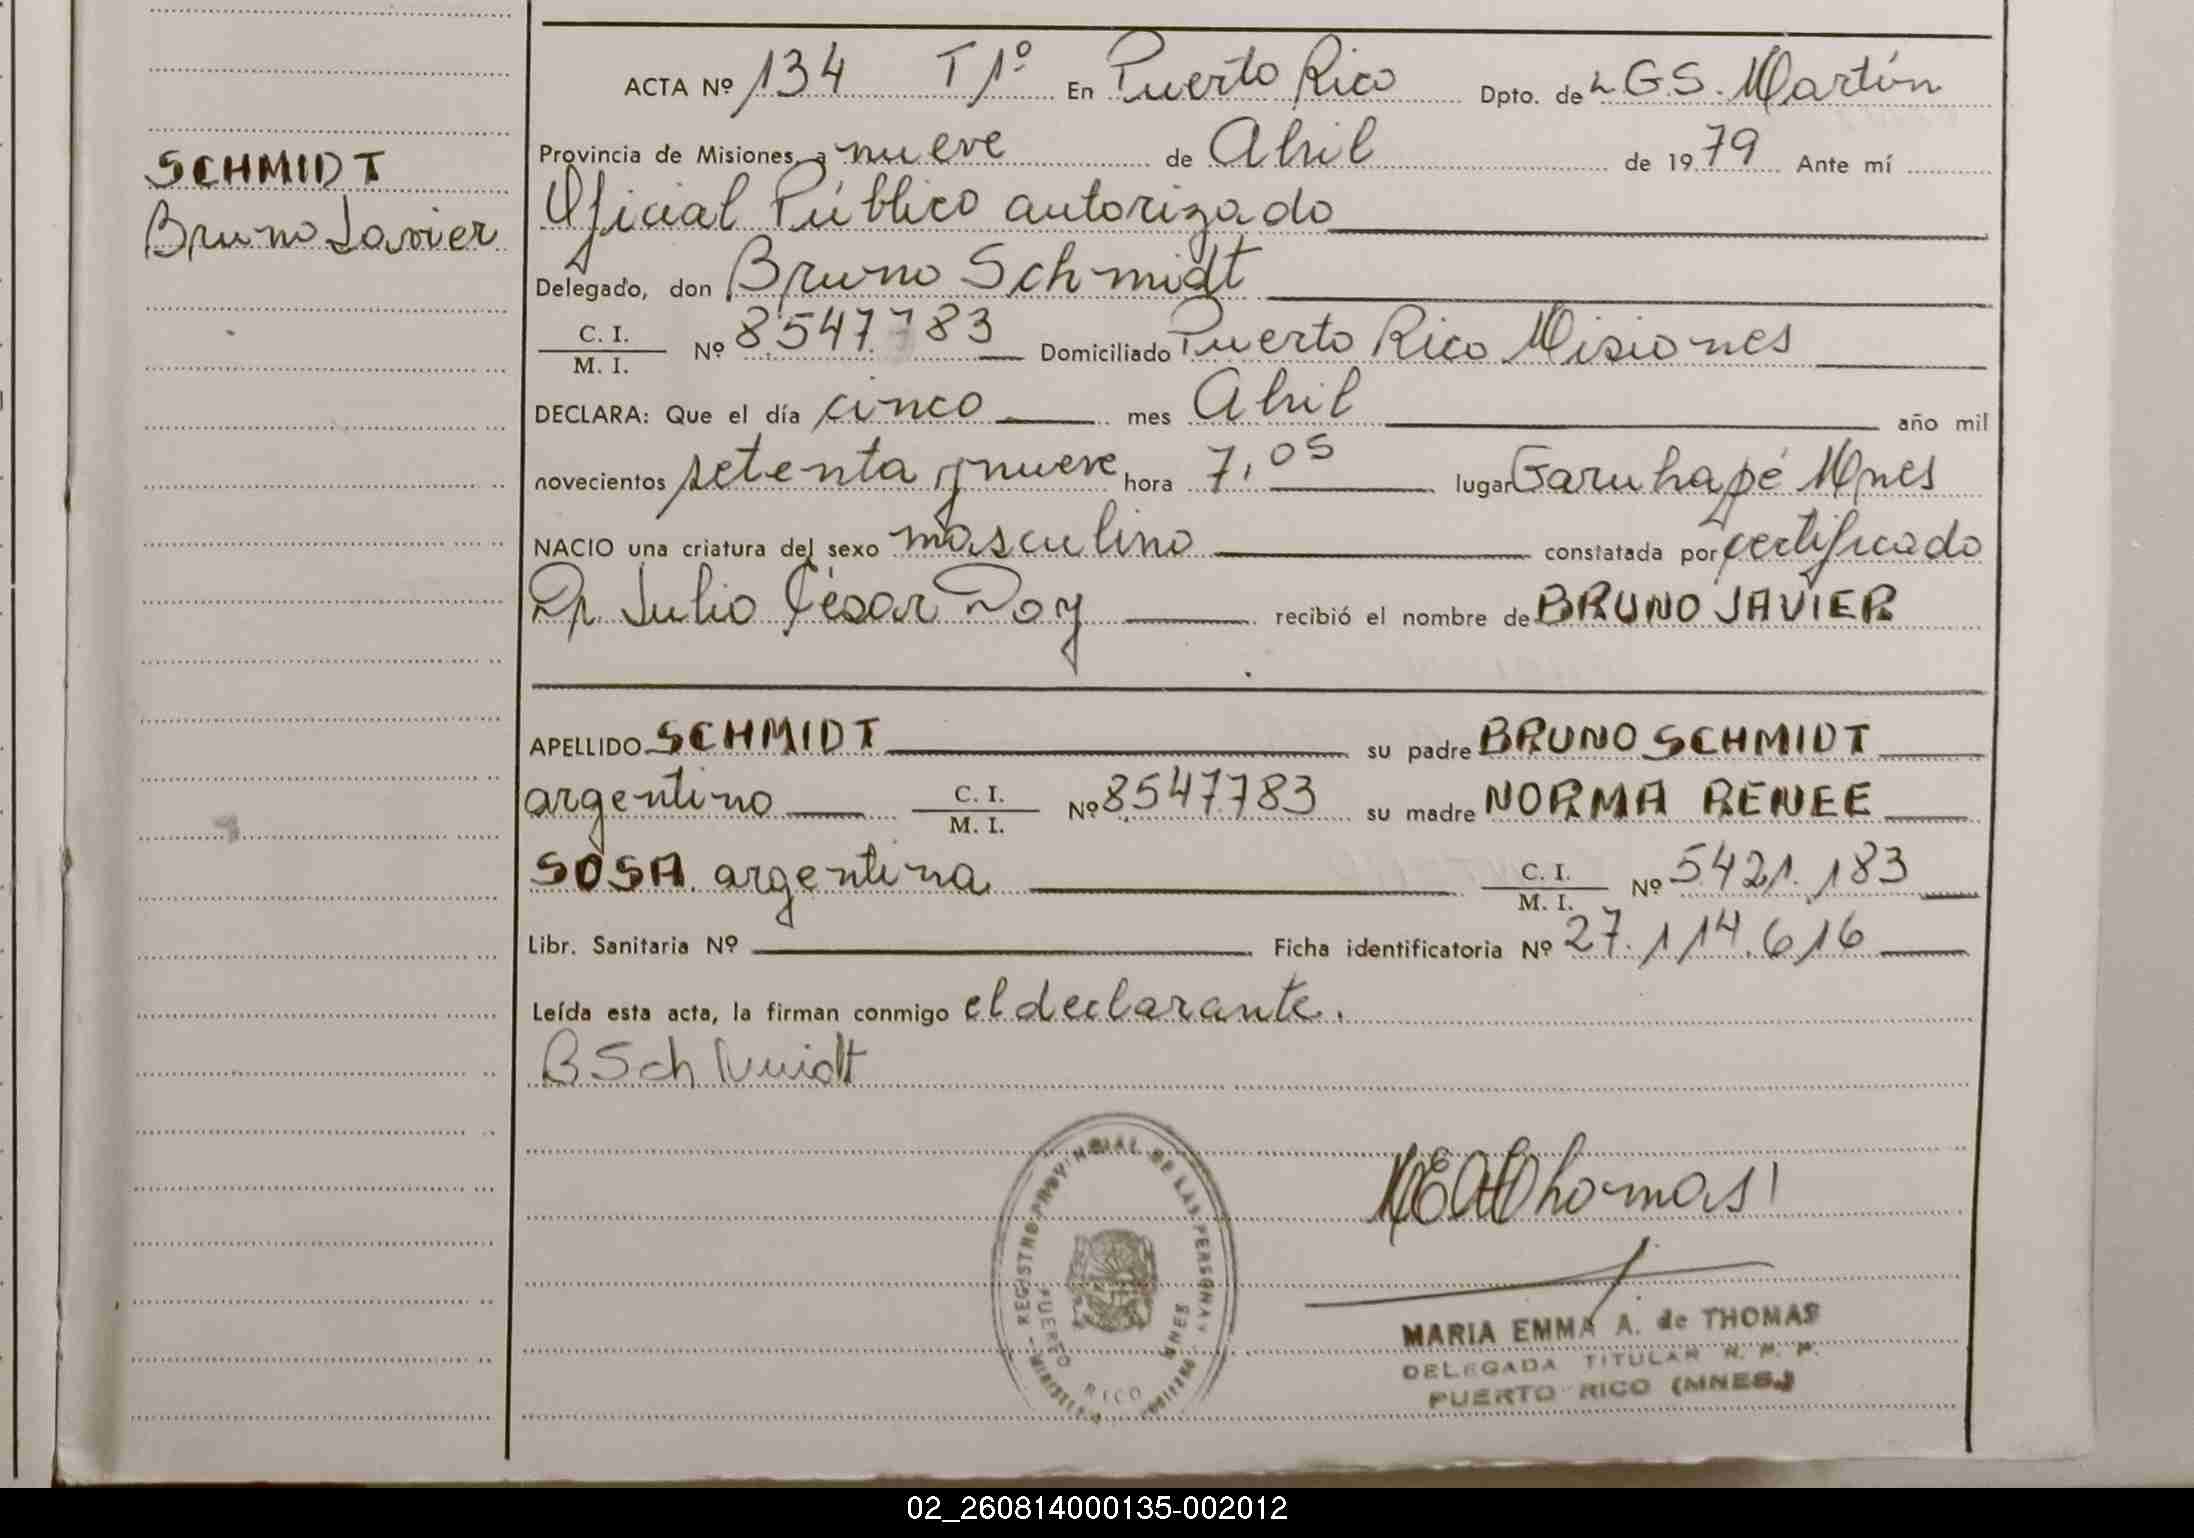 SCHMIDT
Bruno Javier
ACTA Nº 134 T 1º En Puerto Rico Dpto. de L. G. S. Martín
Provincia de Misiones, a nueve de Abril de 1979 Ante mí
Oficial Público autorizado
Delegado, don Bruno Schmidt
C. I.
M. I.
Nº 8.547.783 Domiciliado Puerto Rico Misiones
DECLARA: Que el día cinco mes Abril año mil
novecientos setenta y nueve hora 7,05 lugar Garuhapé Mnes
NACIO una criatura del sexo masculino constatada por certificado
Dr. Julio César Doy recibió el nombre de BRUNO JAVIER
APELLIDO SCHMIDT su padre BRUNO SCHMIDT
argentino C. I. M. I. Nº 8.547.783 su madre NORMA RENEE
SOSA argentina C. I. M. I. Nº 5.421.183
Libr. Sanitaria Nº Ficha identificatoria Nº 27.114.616
Leída esta acta, la firman conmigo el declarante.
BSchmidt
REGISTRO PROVINCIAL DE LAS PERSONAS
PUERTO RICO MNES
MEAThomas
MARIA EMMA A. de THOMAS
DELEGADA TITULAR R. P. P.
PUERTO RICO (MNES.)
02_260814000135-002012